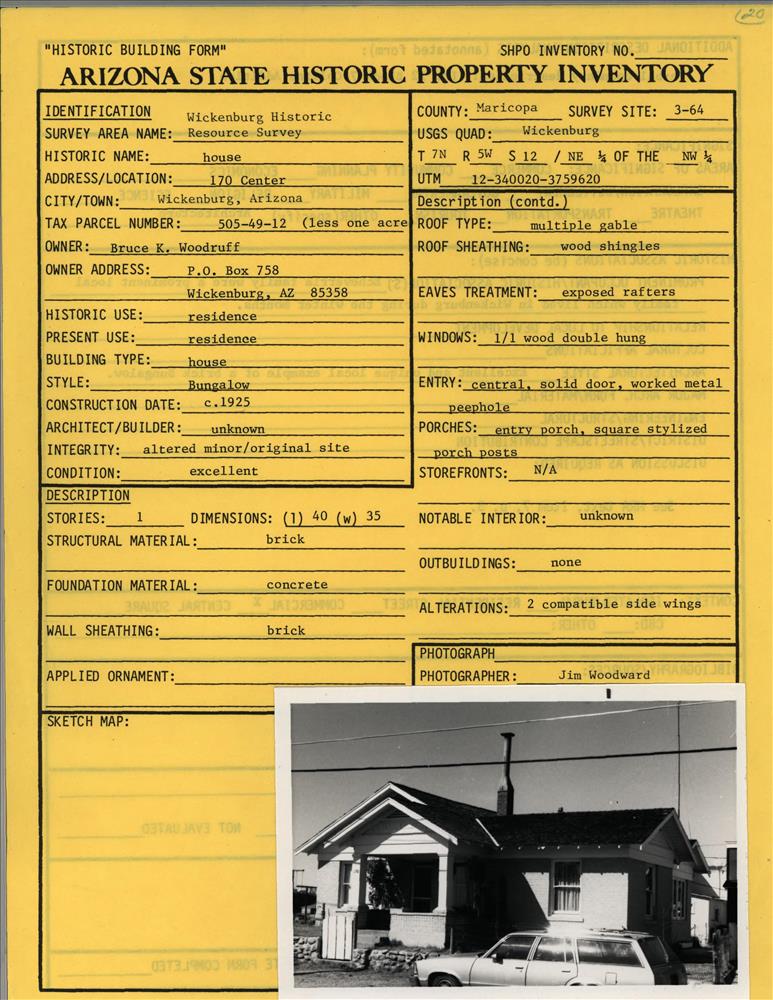 20
"HISTORIC BUILDING FORM" SHPO INVENTORY NO.
ARIZONA STATE HISTORIC PROPERTY INVENTORY
IDENTIFICATION
SURVEY AREA NAME: Wickenburg Historic
Resource Survey
HISTORIC NAME: house
ADDRESS/LOCATION: 170 Center
CITY/TOWN: Wickenburg, Arizona
TAX PARCEL NUMBER: 505-49-12 (less one acre
OWNER: Bruce K. Woodruff
OWNER ADDRESS: P.O. Box 758
Wickenburg, AZ 85358
HISTORIC USE: residence
PRESENT USE: residence
BUILDING TYPE: house
STYLE: Bungalow
CONSTRUCTION DATE: c.1925
ARCHITECT/BUILDER: unknown
INTEGRITY: altered minor/original site
CONDITION: excellent
DESCRIPTION
STORIES: 1 DIMENSIONS: (l) 40 (w) 35
STRUCTURAL MATERIAL: brick
FOUNDATION MATERIAL: concrete
WALL SHEATHING: brick
APPLIED ORNAMENT:
SKETCH MAP:
COUNTY: Maricopa SURVEY SITE: 3-64
USGS QUAD: Wickenburg
T 7N R 5W S 12 / NE ¼ OF THE NW ¼
UTM 12-340020-3759620
Description (contd.)
ROOF TYPE: multiple gable
ROOF SHEATHING: wood shingles
EAVES TREATMENT: exposed rafters
WINDOWS: 1/1 wood double hung
ENTRY: central, solid door, worked metal
peephole
PORCHES: entry porch, square stylized
porch posts
STOREFRONTS: N/A
NOTABLE INTERIOR: unknown
OUTBUILDINGS: none
ALTERATIONS: 2 compatible side wings
PHOTOGRAPH
PHOTOGRAPHER: Jim Woodward